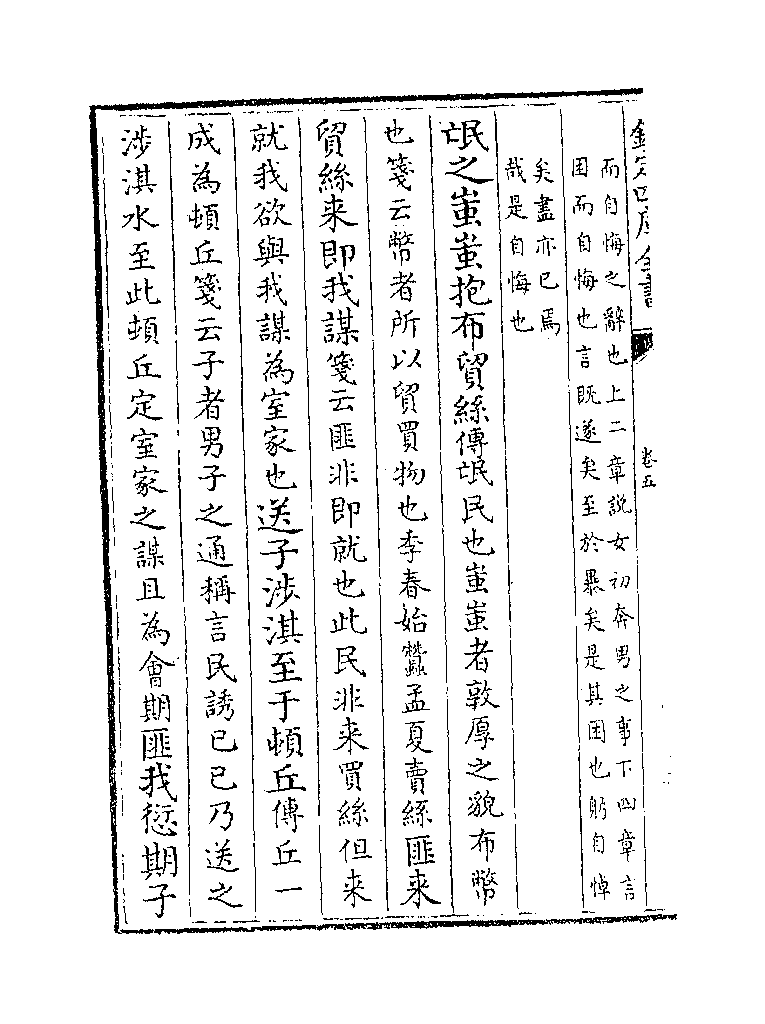 欽定四庫全書
卷五
而自悔之辭也上二章說女初奔男之事下四章言
困而自悔也言既遂矣至於暴矣是其困也躬自悼
矣盡亦已焉
哉是自悔也
氓之蚩蚩抱布貿絲傳氓民也蚩蚩者敦厚之貌布幣
也箋云幣者所以貿買物也季春始蠶孟夏賣絲匪来
貿絲来即我謀箋云匪非即就也此民非来買絲但来
就我欲與我謀為室家也送子涉淇至于頓丘傳丘一
成為頓丘箋云子者男子之通稱言民誘已已乃送之
涉淇水至此頓丘定室家之謀且為會期匪我愆期子